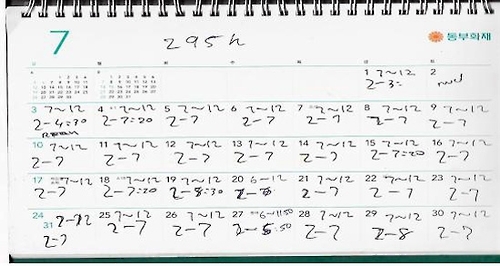 7 295h 동부화재
1 7~12 2
2-3:
3 7~12 4 7~12 5 7~12 6 7~12 7 7~12 8 7~12 9 7~12
2-4:30 2-7:20 2-7 2-7 2-7 2-7 2-7
10 7~12 11 7~12 12 7~12 13 7~12 14 7~12 15 7~12 16 7~12
2-7 2-7 2-7 2-7 2-7 2-7:20 2-7
17 7~12 18 7~12 19 7~12 20 6-12 21 7~12 22 7~12 23 7~12
2-7 2-7:20 2-8:30 2-7 2-7 2-7
24 7~12 25 7~12 26 7~12 27 6~11:50 28 7~12 29 7~12 30 7~12
31 2-7 2-7 2-7 2-5:50 2-7 2-8 2-7